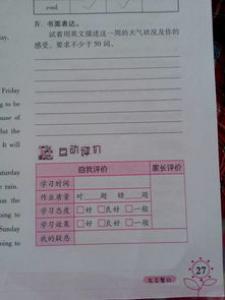 cool
Friday
ay.
IV. 书面表达。
试着用英文描述这一周的天气状况及你的
感受。要求不少于50词。
ng to be
use of
But the
It will
自动评价
自我评价 家长评价
学习时间
作业质量 对 题 错 题
学习态度 □好 □良好 □一般
学习效果 □好 □良好 □一般
我的疑惑
turday
rain.
an the
oing to
Sunday
oing to
27